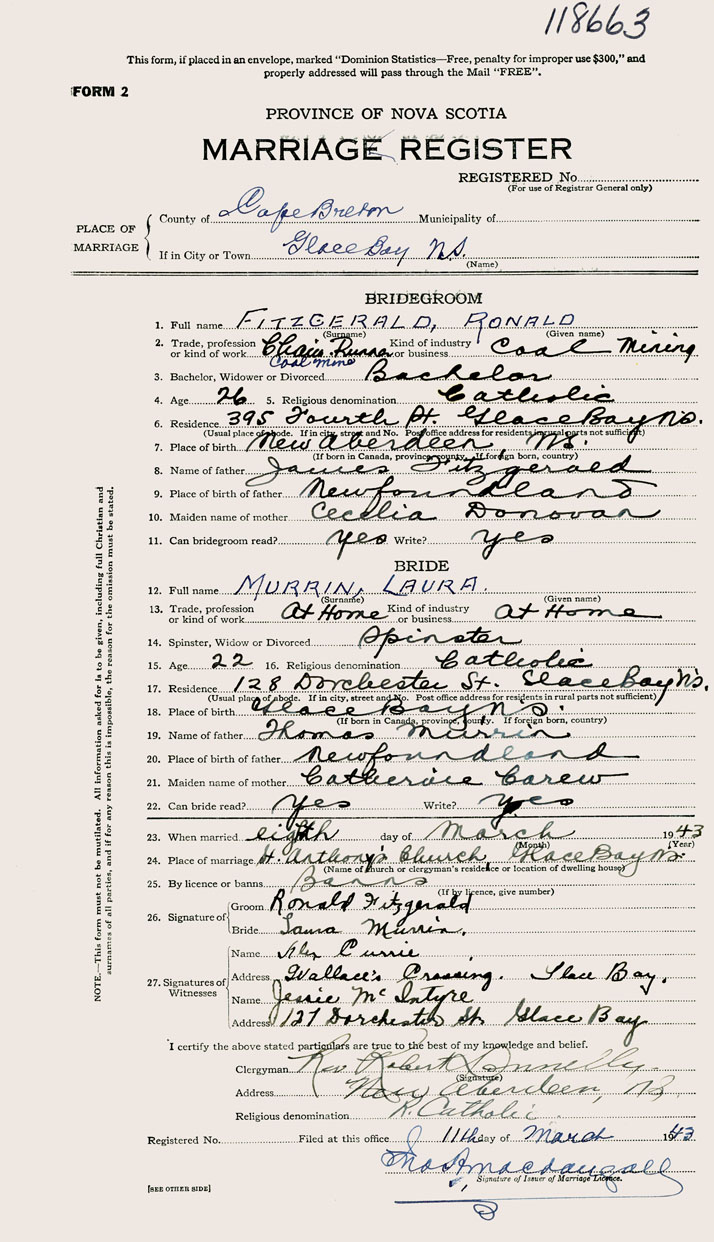 118663
This form, if placed in an envelope, marked "Dominion Statistics—Free, penalty for improper use $300," and
properly addressed will pass through the Mail "FREE".
FORM 2
PROVINCE OF NOVA SCOTIA
MARRIAGE REGISTER
REGISTERED No.
(For use of Registrar General only)
PLACE OF MARRIAGE
County of Cape Breton Municipality of
If in City or Town Glace Bay N.S.
(Name)
BRIDEGROOM
1. Full name FITZGERALD, RONALD
(Surname) (Given name)
2. Trade, profession or kind of work Chain Runner Coal mine Kind of industry or business Coal Mining
3. Bachelor, Widower or Divorced Bachelor
4. Age 26 5. Religious denomination Catholic
6. Residence 395 Fourth St. Glace Bay N.S.
(Usual place of abode. If in city, street and No. Post office address for residents in rural parts not sufficient)
7. Place of birth New Aberdeen, N.S.
(If born in Canada, province, county. If foreign born, country)
8. Name of father James Fitzgerald
9. Place of birth of father Newfoundland
10. Maiden name of mother Cecelia Donovan
11. Can bridegroom read? yes Write? yes
BRIDE
12. Full name MURRIN, LAURA.
(Surname) (Given name)
13. Trade, profession or kind of work At Home Kind of industry or business At Home
14. Spinster, Widow or Divorced Spinster
15. Age 22 16. Religious denomination Catholic
17. Residence 128 Dorchester St. Glace Bay N.S.
(Usual place of abode. If in city, street and No. Post office address for residents in rural parts not sufficient)
18. Place of birth Glace Bay N.S.
(If born in Canada, province, county. If foreign born, country)
19. Name of father Thomas Murrin
20. Place of birth of father Newfoundland
21. Maiden name of mother Catherine Carew
22. Can bride read? Yes Write? yes
23. When married eighth day of March 1943
(Month) (Year)
24. Place of marriage St. Anthony's Church, Glace Bay N.S.
(Name of church or clergyman's residence or location of dwelling house)
25. By licence or banns Banns
(If by licence, give number)
26. Signature of
Groom Ronald Fitzgerald
Bride Laura Murrin.
27. Signatures of Witnesses
Name Alex Currie
Address Wallace's Crossing. Glace Bay.
Name Jessie McIntyre
Address 127 Dorchester St. Glace Bay
I certify the above stated particulars are true to the best of my knowledge and belief.
Clergyman Rev. Robert Donnelly.
(Signature)
Address New Aberdeen,
Religious denomination R. Catholic.
Registered No. Filed at this office 11th day of March 1943
Macdougall
Signature of Issuer of Marriage Licence.
[SEE OTHER SIDE]
NOTE.—This form must not be mutilated. All information asked for is to be given, including full Christian and
surnames of all parties, and if for any reason this is impossible, the reason for the omission must be stated.